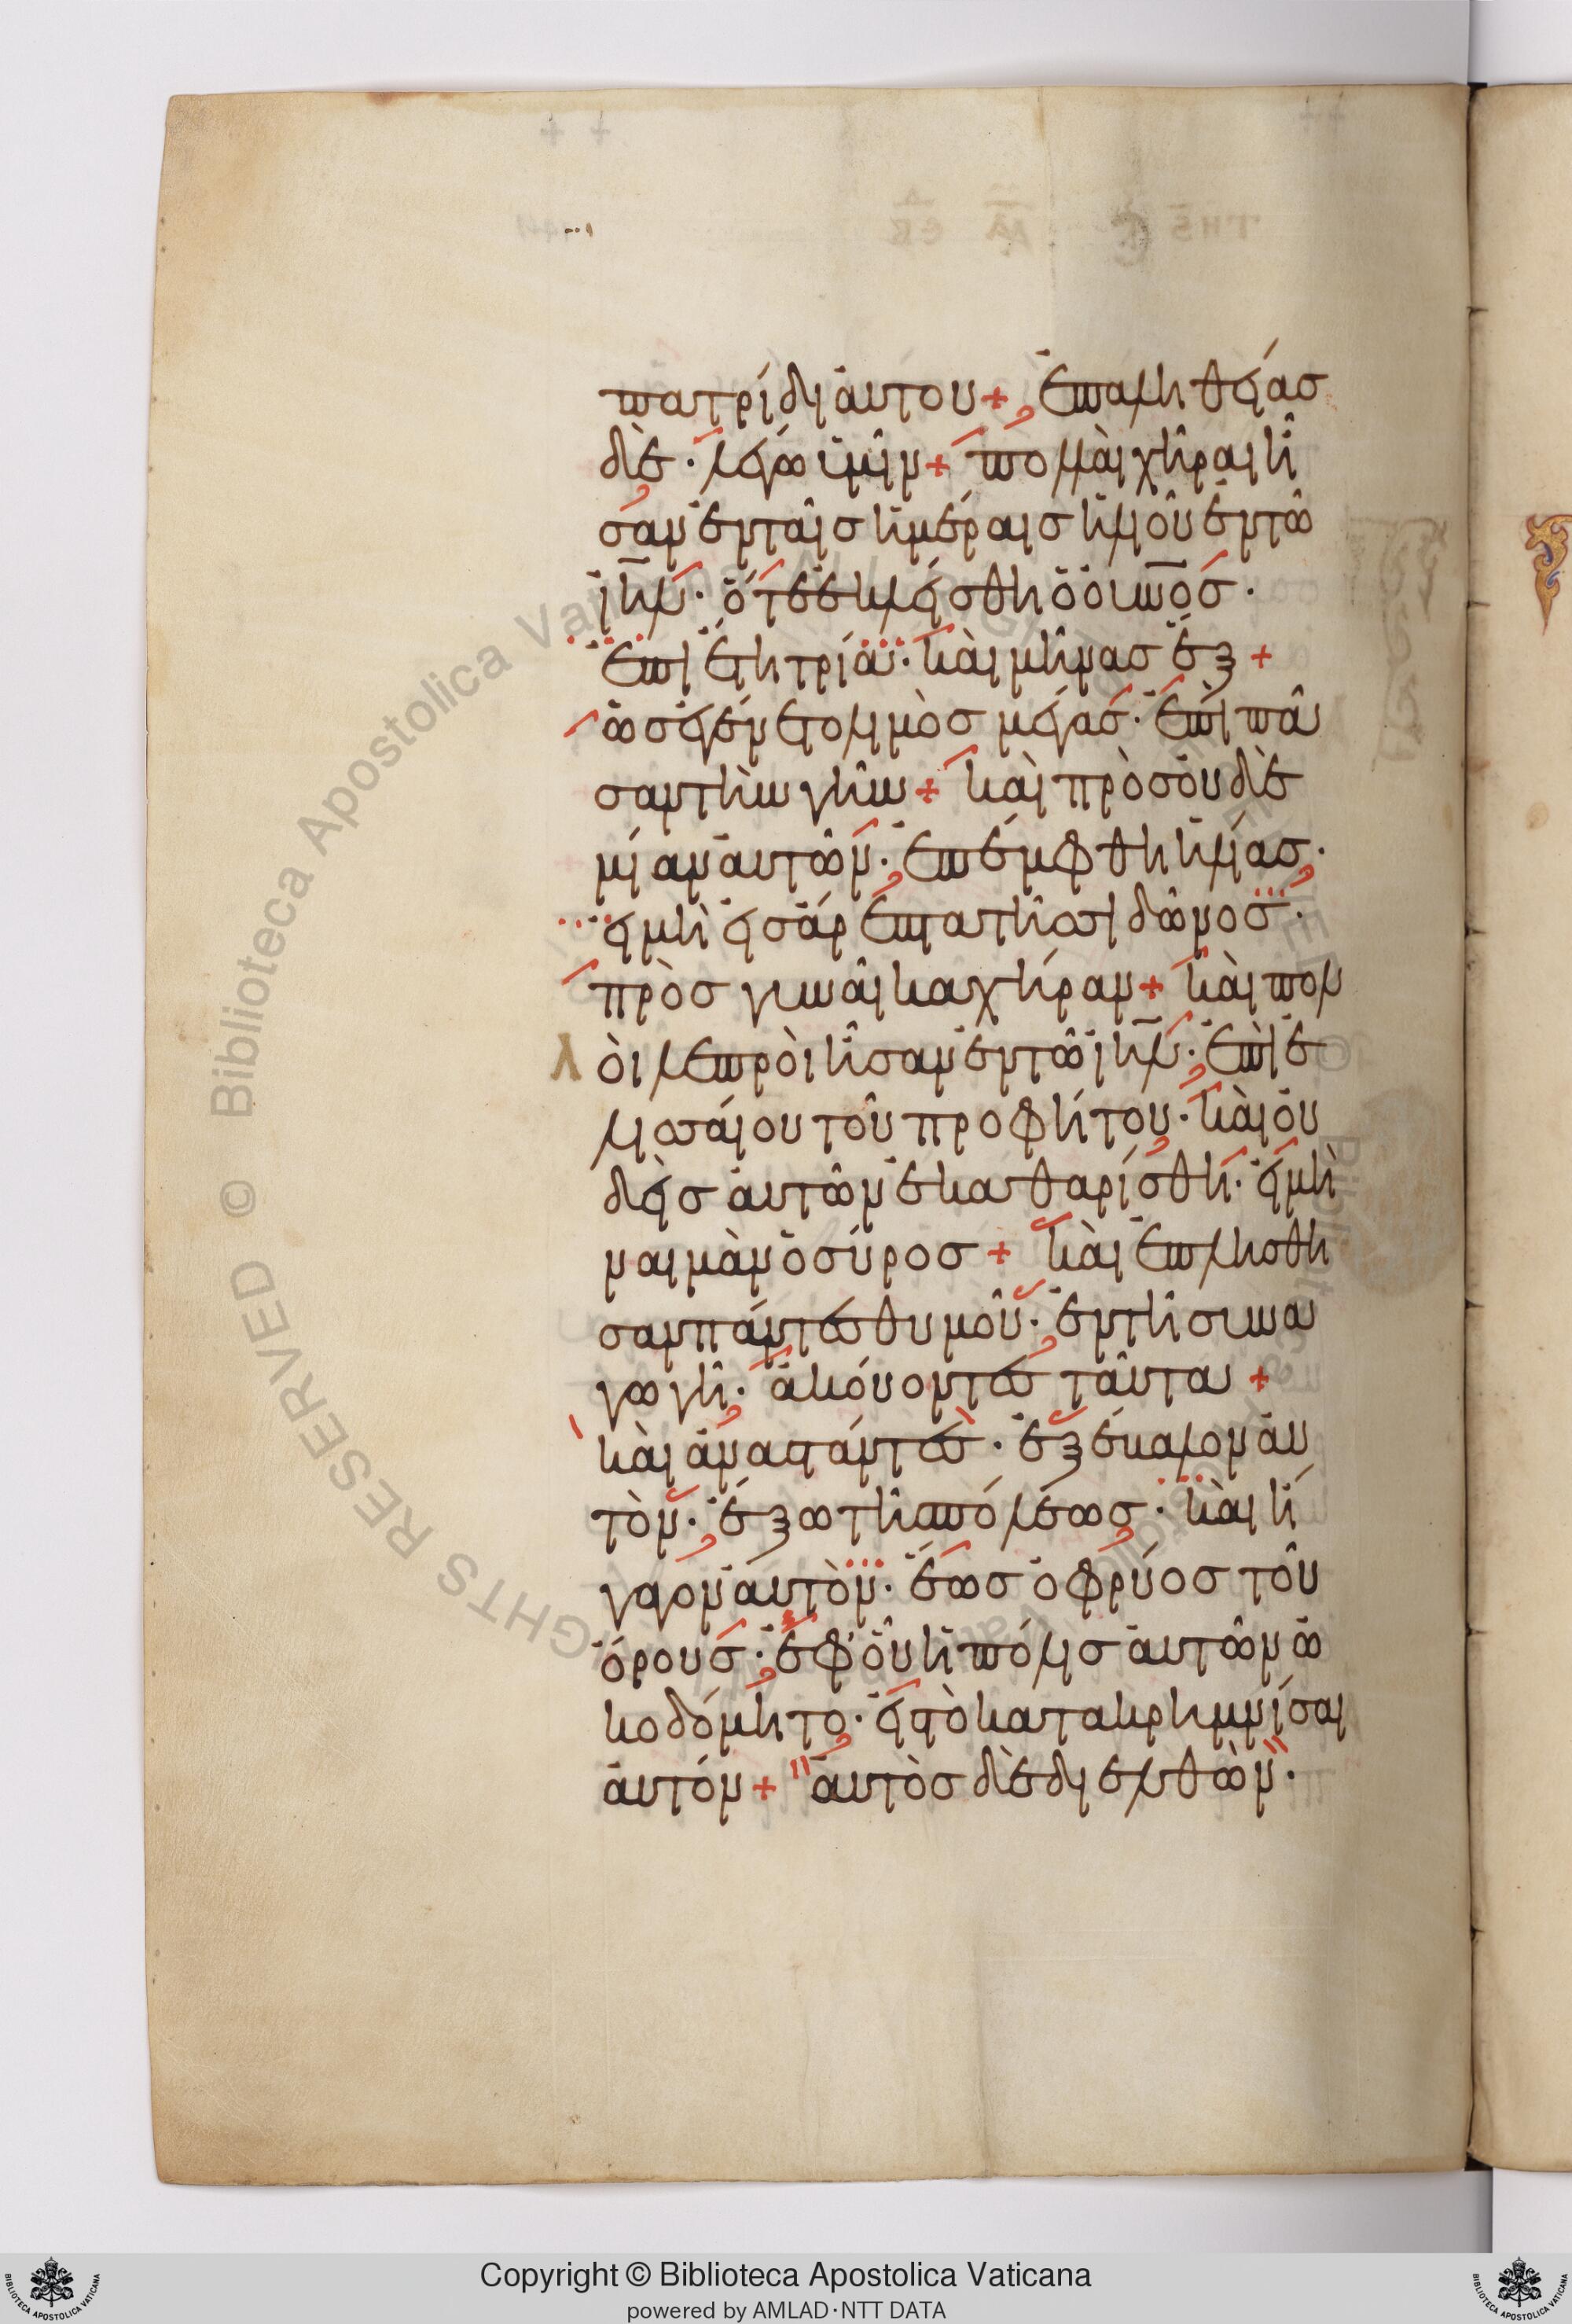 πατρίδι ἀυτου + ἐπ ἀληθείας
δὲ · λέγω ὑμῖν + πολλὰι χῆραι ἦ
σαν ἐν ταῖς ἡμέραις ἡλιοῦ ἐν τῶ
ἰηλ · ὅτε ἐκλείσθη ὁ οὐνος ·
ἐπι ἔτη τρία · καὶ μῆνας ἓξ +
ὡς ἐγένετο λιμὸς μέγας · ἐπὶ πᾶ
σαν τὴν γῆν + καὶ πρὸς οὐδὲ
μίαν ἀυτῶν · ἐπέμφθη ἡλίας ·
εἰ μὴ εἰς σάρεπτα τῆς σιδῶνος ·
πρὸς γυναῖκα χήραν + καὶ πολ
λ ὸι λεπρὸι ἦσαν ἐν τῶ ἰηλ · ἐπὶ ἐ
λισσάιου τοῦ προφήτου · καὶ οὐ
δεὶς ἀυτῶν ἐκαθαρίσθη · εἰ μὴ
ναιμὰν ὁ σύρος + καὶ ἐπλησθη
σαν πάντες θυμοῦ · ἐν τῆ συνα
γωγῆ · ἀκόυοντες ταῦτα +
καὶ ἀναστάντες · ἐξέβαλον ἀυ
τὸν · ἔξω τῆς πόλεως · καὶ ἤ
γαγον ἀυτὸν · ἕως ὀφρύος τοῦ
ὄρους · ἐφ' οὗ ἡ πόλις ἀυτῶν ὠ
κοδόμητο · εἰς τὸ κατακρημνίσαι
ἀυτόν + ἀυτὸς δὲ διελθὼν ·
Copyright © Biblioteca Apostolica Vaticana
powered by AMLAD·NTT DATA